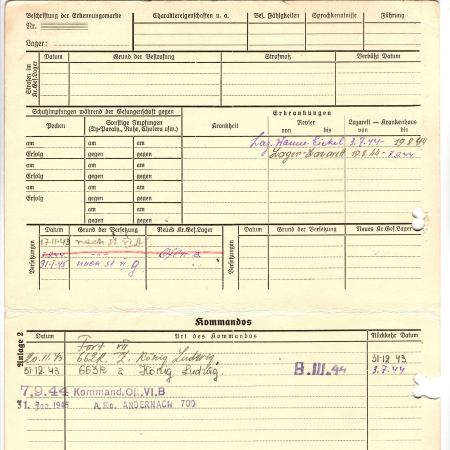 Beschriftung der Erkennungsmarke
Nr.
Lager:
Charaktereigenschaften u. a.
Bes. Fähigkeiten
Sprachkenntnisse
Führung
Strafen im Kr.Gef.Lager
Datum
Grund der Bestrafung
Strafmaß
Verbüßt Datum
Schutzimpfungen während der Gefangenschaft gegen
Erkrankungen
Pocken
Sonstige Impfungen
(Ty-Paraty., Ruhr, Cholera usw.)
Krankheit
Revier
von bis
Lazarett — Krankenhaus
von bis
am am
Erfolg gegen
am am
Erfolg gegen
am am
Erfolg gegen
am am
Erfolg gegen
am
gegen
Laz. Wanne-Eickel 3.7.44- 19.8.44
Lager-Lazarett 19.8.44- 7.9.44
Versetzungen
Datum
Grund der Versetzung
Neues Kr.Gef.Lager
Versetzungen
Datum
Grund der Versetzung
Neues Kr.Gef.Lager
17.11.43 nach St VI A
7.9.44
31.1.45 nach St
Kommandos
Anlage 2
Datum
Art des Kommandos
Rückkehr Datum
Fort VII
20.11.43 662R Z. König Ludwig 31.12.43
31.12.43 663R Z König Ludwig 8.III.44 3.7.44
7.9.44 Kommand. Ofl. VI. B
31. Jan. 1945 A. Ko. ANDERNACH 700